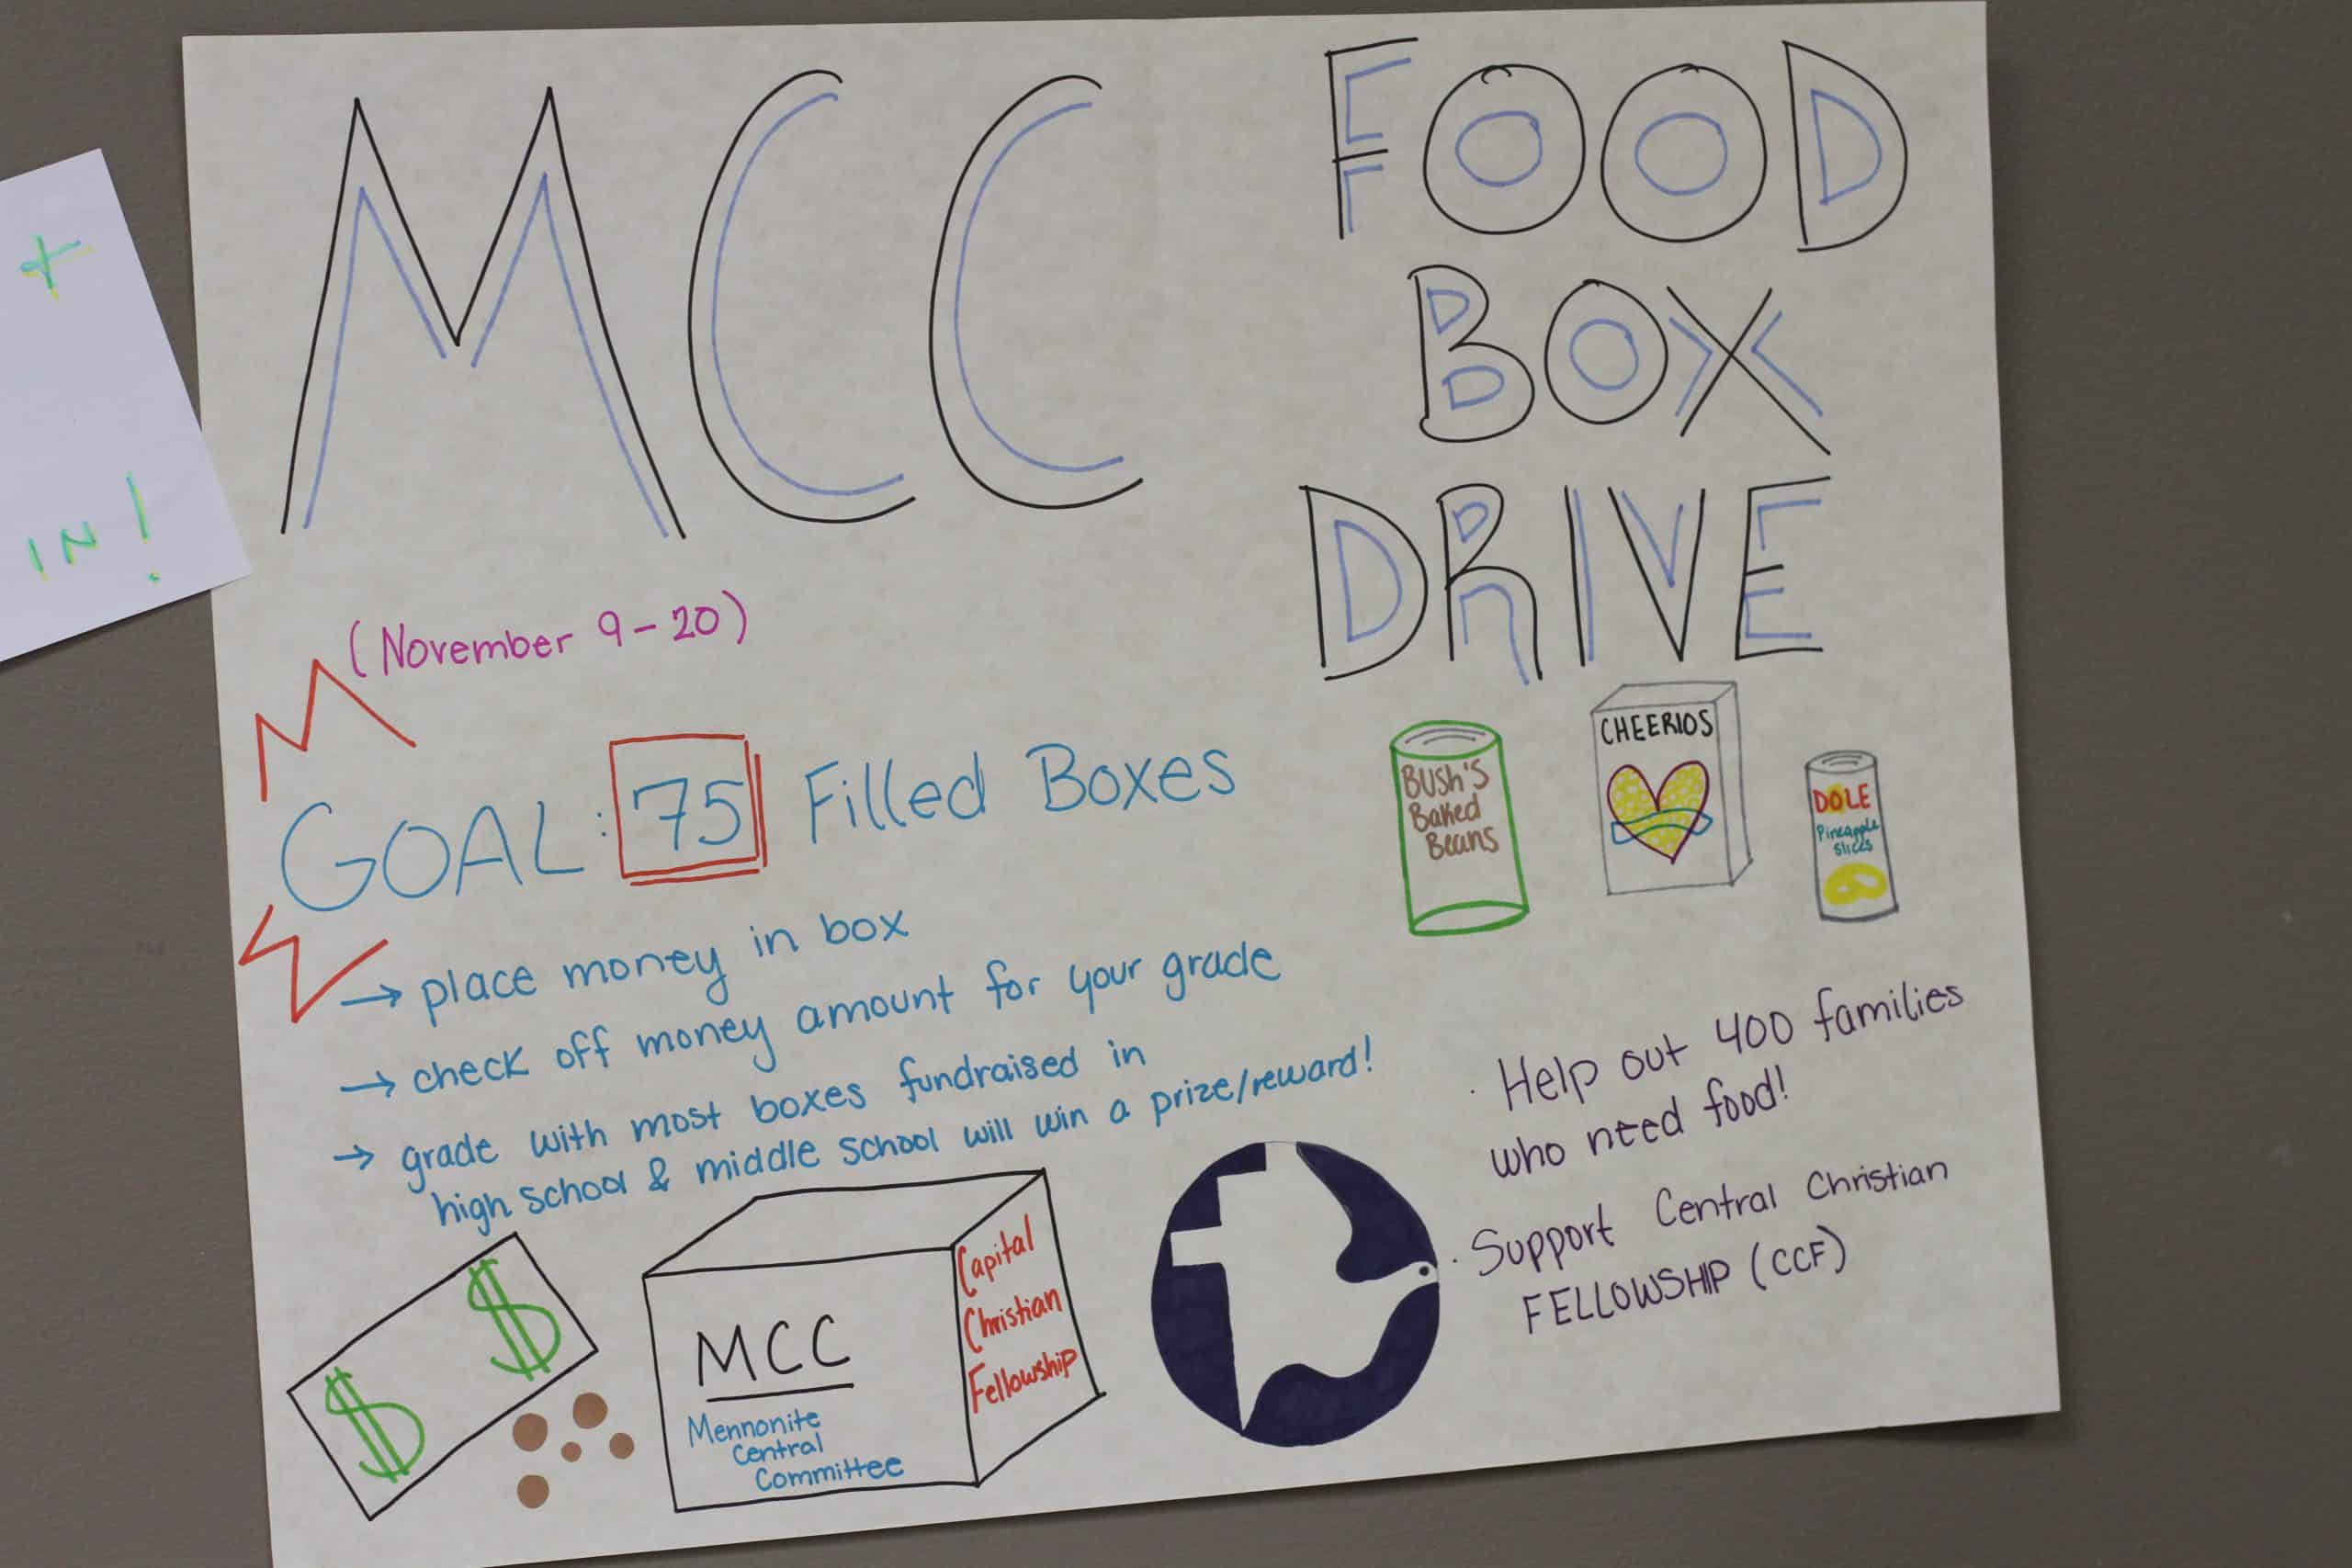 MCC
FOOD
BOX
DRIVE
(November 9-20)
GOAL: 75 Filled Boxes
→ place money in box
→ check off money amount for your grade
→ grade with most boxes fundraised in
high school & middle school will win a prize/reward!
BUSh'S
Baked
Beans
CHEERIOS
DOLE
Pineapple
Slices
· Help out 400 families
who need food!
· Support Central Christian
FELLOWSHIP (CCF)
$ $
MCC
Mennonite
Central
Committee
Capital
Christian
Fellowship
IN!